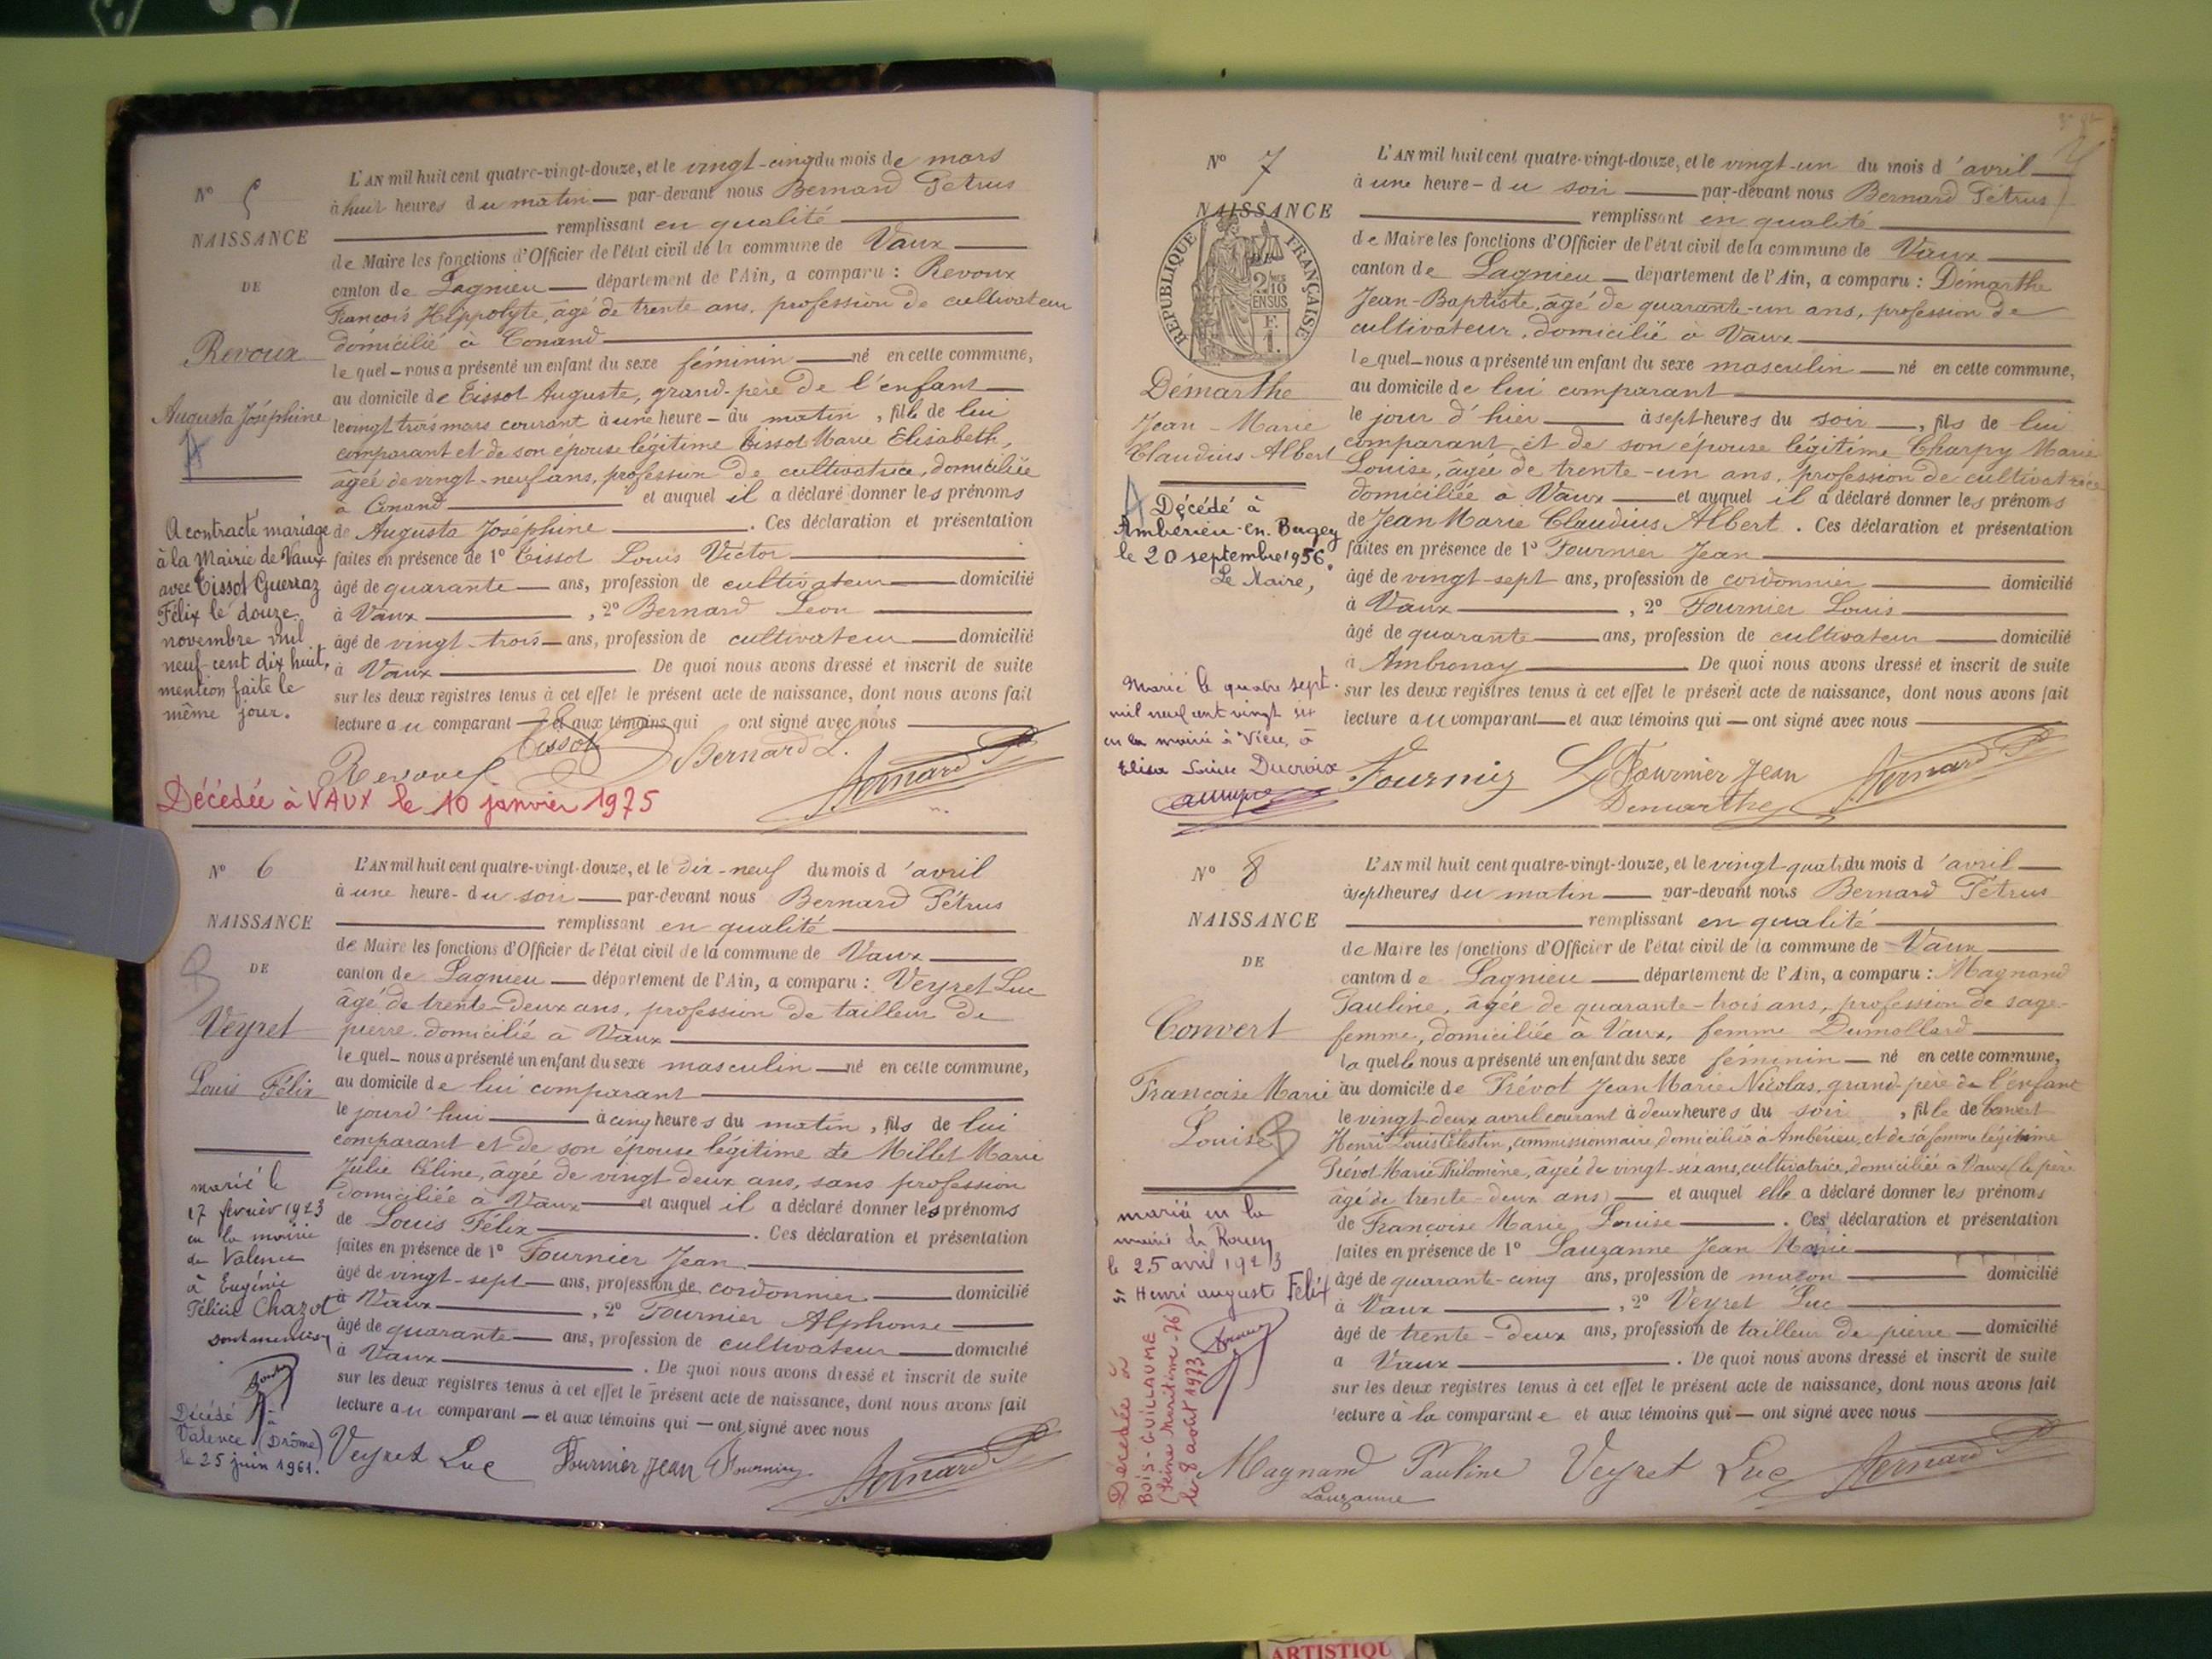 N° 5
NAISSANCE
DE
Revoux
Augusta Joséphine
A contracté mariage
à la Mairie de Vaux
avec Tissot Guerraz
Félix le douze
novembre mil
neuf cent dix huit,
mention faite le
même jour.
L'AN mil huit cent quatre-vingt-douze, et le vingt-cinq du mois de mars
à huit heures du matin — par-devant nous Bernard Pétrus
remplissant en qualité
de Maire les fonctions d'Officier de l'état civil de la commune de Vaux
canton de Lagnieu — département de l'Ain, a comparu : Revoux
François Hippolyte, âgé de trente ans, profession de cultivateur
domicilié à Conand
lequel — nous a présenté un enfant du sexe féminin — né en cette commune,
au domicile de Tissot Auguste, grand-père de l'enfant
le vingt trois mars courant à une heure — du matin, fille de lui
comparant et de son épouse légitime Tissot Marie Elisabeth,
âgée de vingt-neuf ans, profession de cultivatrice, domiciliée
à Conand — et auquel il a déclaré donner les prénoms
de Augusta Joséphine — . Ces déclaration et présentation
faites en présence de 1° Tissot Louis Victor
âgé de quarante — ans, profession de cultivateur — domicilié
à Vaux — , 2° Bernard Léon
âgé de vingt-trois — ans, profession de cultivateur — domicilié
à Vaux — De quoi nous avons dressé et inscrit de suite
sur les deux registres tenus à cet effet le présent acte de naissance, dont nous avons fait
lecture au comparant — et aux témoins qui ont signé avec nous
Tissot Bernard L.
Revoux Bernard P
Décédée à VAUX le 10 janvier 1975
N° 6
NAISSANCE
DE
B
Veyret
Louis Félix
marié le
17 février 1923
en la mairie
de Valence
à Eugénie
Félicie Chazot
dont mention
Décédé à
Valence (Drôme)
le 25 juin 1961.
L'AN mil huit cent quatre-vingt-douze, et le dix-neuf du mois d'avril
à une heure - du soir — par-devant nous Bernard Pétrus
remplissant en qualité
de Maire les fonctions d'Officier de l'état civil de la commune de Vaux
canton de Lagnieu — département de l'Ain, a comparu : Veyret Luc
âgé de trente-deux ans, profession de tailleur de
pierre domicilié à Vaux
lequel — nous a présenté un enfant du sexe masculin — né en cette commune,
au domicile de lui comparant
le jourd'hui — à cinq heures du matin, fils de lui
comparant et de son épouse légitime Millet Marie
Julie Céline, âgée de vingt deux ans, sans profession
domiciliée à Vaux — et auquel il a déclaré donner les prénoms
de Louis Félix — . Ces déclaration et présentation
faites en présence de 1° Fournier Jean
âgé de vingt-sept — ans, profession de cordonnier — domicilié
à Vaux — , 2° Fournier Alphonse
âgé de quarante — ans, profession de cultivateur — domicilié
à Vaux — . De quoi nous avons dressé et inscrit de suite
sur les deux registres tenus à cet effet le présent acte de naissance, dont nous avons fait
lecture au comparant — et aux témoins qui — ont signé avec nous
Veyret Luc Fournier Jean Fournier Bernard P
N° 7
NAISSANCE
RÉPUBLIQUE FRANÇAISE
2/10 EN SUS
F. 1.
Démarthe
Jean - Marie
Claudius Albert
Décédé à
Ambérieu-en-Bugey
le 20 septembre 1956.
Le Maire,
Marié le quatre sept.
mil neuf cent vingt six
en la mairie à Vieu, à
Elisa Louise Ducroix
L'AN mil huit cent quatre-vingt-douze, et le vingt-un du mois d'avril
à une heure - du soir — par-devant nous Bernard Pétrus
remplissant en qualité
de Maire les fonctions d'Officier de l'état civil de la commune de Vaux
canton de Lagnieu — département de l'Ain, a comparu : Démarthe
Jean-Baptiste, âgé de quarante-un ans, profession de
cultivateur, domicilié à Vaux
lequel — nous a présenté un enfant du sexe masculin — né en cette commune,
au domicile de lui comparant
le jour d'hier — à sept heures du soir —, fils de lui
comparant et de son épouse légitime Charpy Marie
Louise, âgée de trente-un ans, profession de cultivatrice
domiciliée à Vaux — et auquel il a déclaré donner les prénoms
de Jean Marie Claudius Albert . Ces déclaration et présentation
faites en présence de 1° Fournier Jean
âgé de vingt-sept ans, profession de cordonnier — domicilié
à Vaux — , 2° Fournier Louis
âgé de quarante — ans, profession de cultivateur — domicilié
à Ambronay — De quoi nous avons dressé et inscrit de suite
sur les deux registres tenus à cet effet le présent acte de naissance, dont nous avons fait
lecture au comparant — et aux témoins qui — ont signé avec nous
Fournier Fournier Jean Bernard P
Demarthe
N° 8
NAISSANCE
DE
Convert
Françoise Marie
Louise B
mariée en la
mairie de Rouen
le 25 avril 1923
à Henri auguste Félix
Décédée à
BOIS-GUILLAUME
(Seine Maritime - 76)
le 8 août 1973
L'AN mil huit cent quatre-vingt-douze, et le vingt-quatre du mois d'avril
à sept heures du matin — par-devant nous Bernard Pétrus
remplissant en qualité
de Maire les fonctions d'Officier de l'état civil de la commune de Vaux
canton de Lagnieu — département de l'Ain, a comparu : Magnand
Pauline, âgée de quarante-trois ans, profession de sage-
femme, domiciliée à Vaux, femme Dumollard
laquelle nous a présenté un enfant du sexe féminin — né en cette commune,
au domicile de Prévot Jean Marie Nicolas, grand-père de l'enfant
le vingt-deux avril courant à deux heures du soir, fille de Convert
Henri Louis Célestin, commissionnaire, domicilié à Ambérieu, et de sa femme légitime
Prévot Marie Philomène, âgée de vingt-six ans, cultivatrice, domiciliée à Vaux (le père
âgé de trente-deux ans) — et auquel elle a déclaré donner les prénoms
de Françoise Marie Louise — . Ces déclaration et présentation
faites en présence de 1° Lauzanne Jean Marie
âgé de quarante-cinq ans, profession de maçon — domicilié
à Vaux — , 2° Veyret Luc
âgé de trente-deux ans, profession de tailleur de pierre — domicilié
à Vaux — . De quoi nous avons dressé et inscrit de suite
sur les deux registres tenus à cet effet le présent acte de naissance, dont nous avons fait
lecture à la comparante et aux témoins qui — ont signé avec nous
Magnand Pauline Veyret Luc Bernard P
Lauzanne
ARTISTIQU